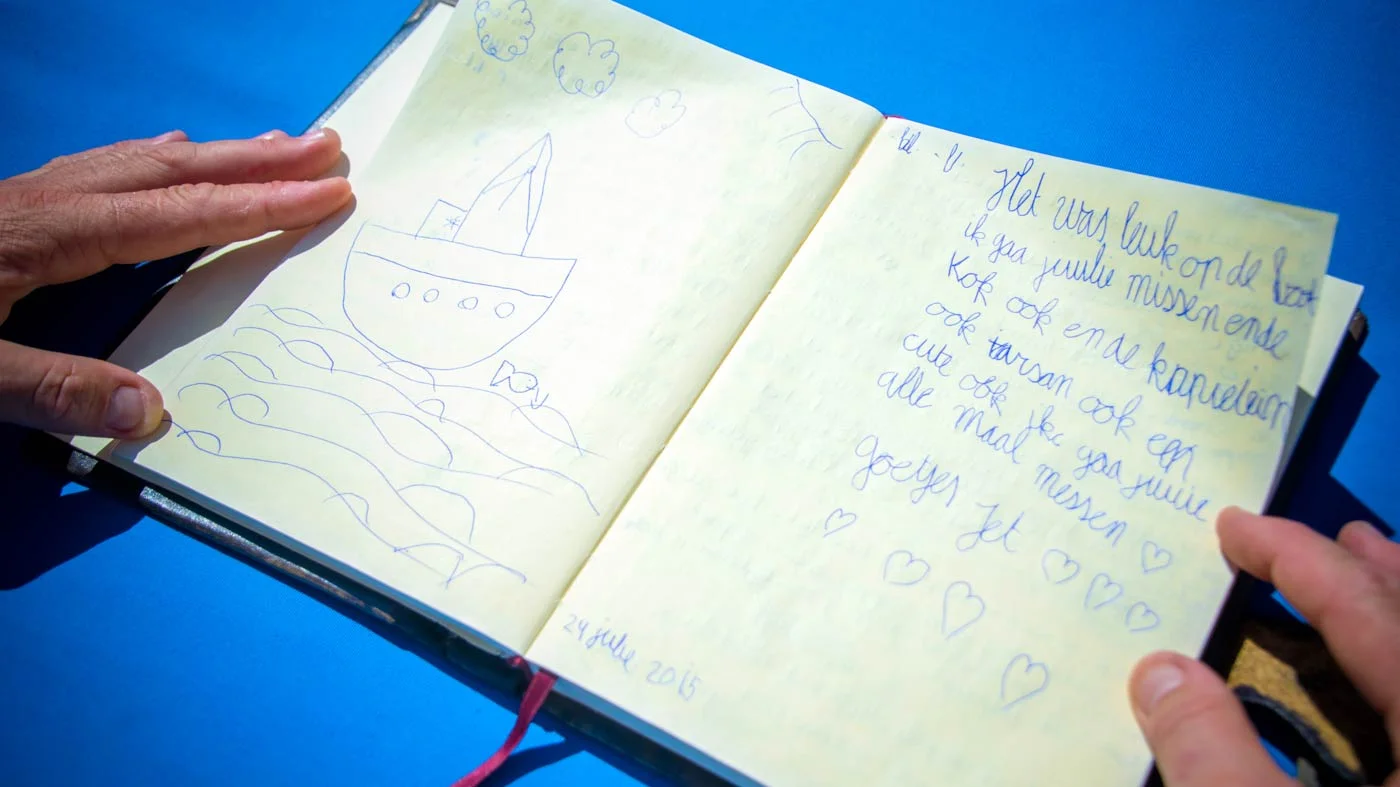 Het was leuk op de boot
ik gaa juulie missen ende
kok ook en de kapietein
ook tarsan ook een
cute ook ik gaa juulie
alle maal messen
goetjes Jet
24 julie 2015